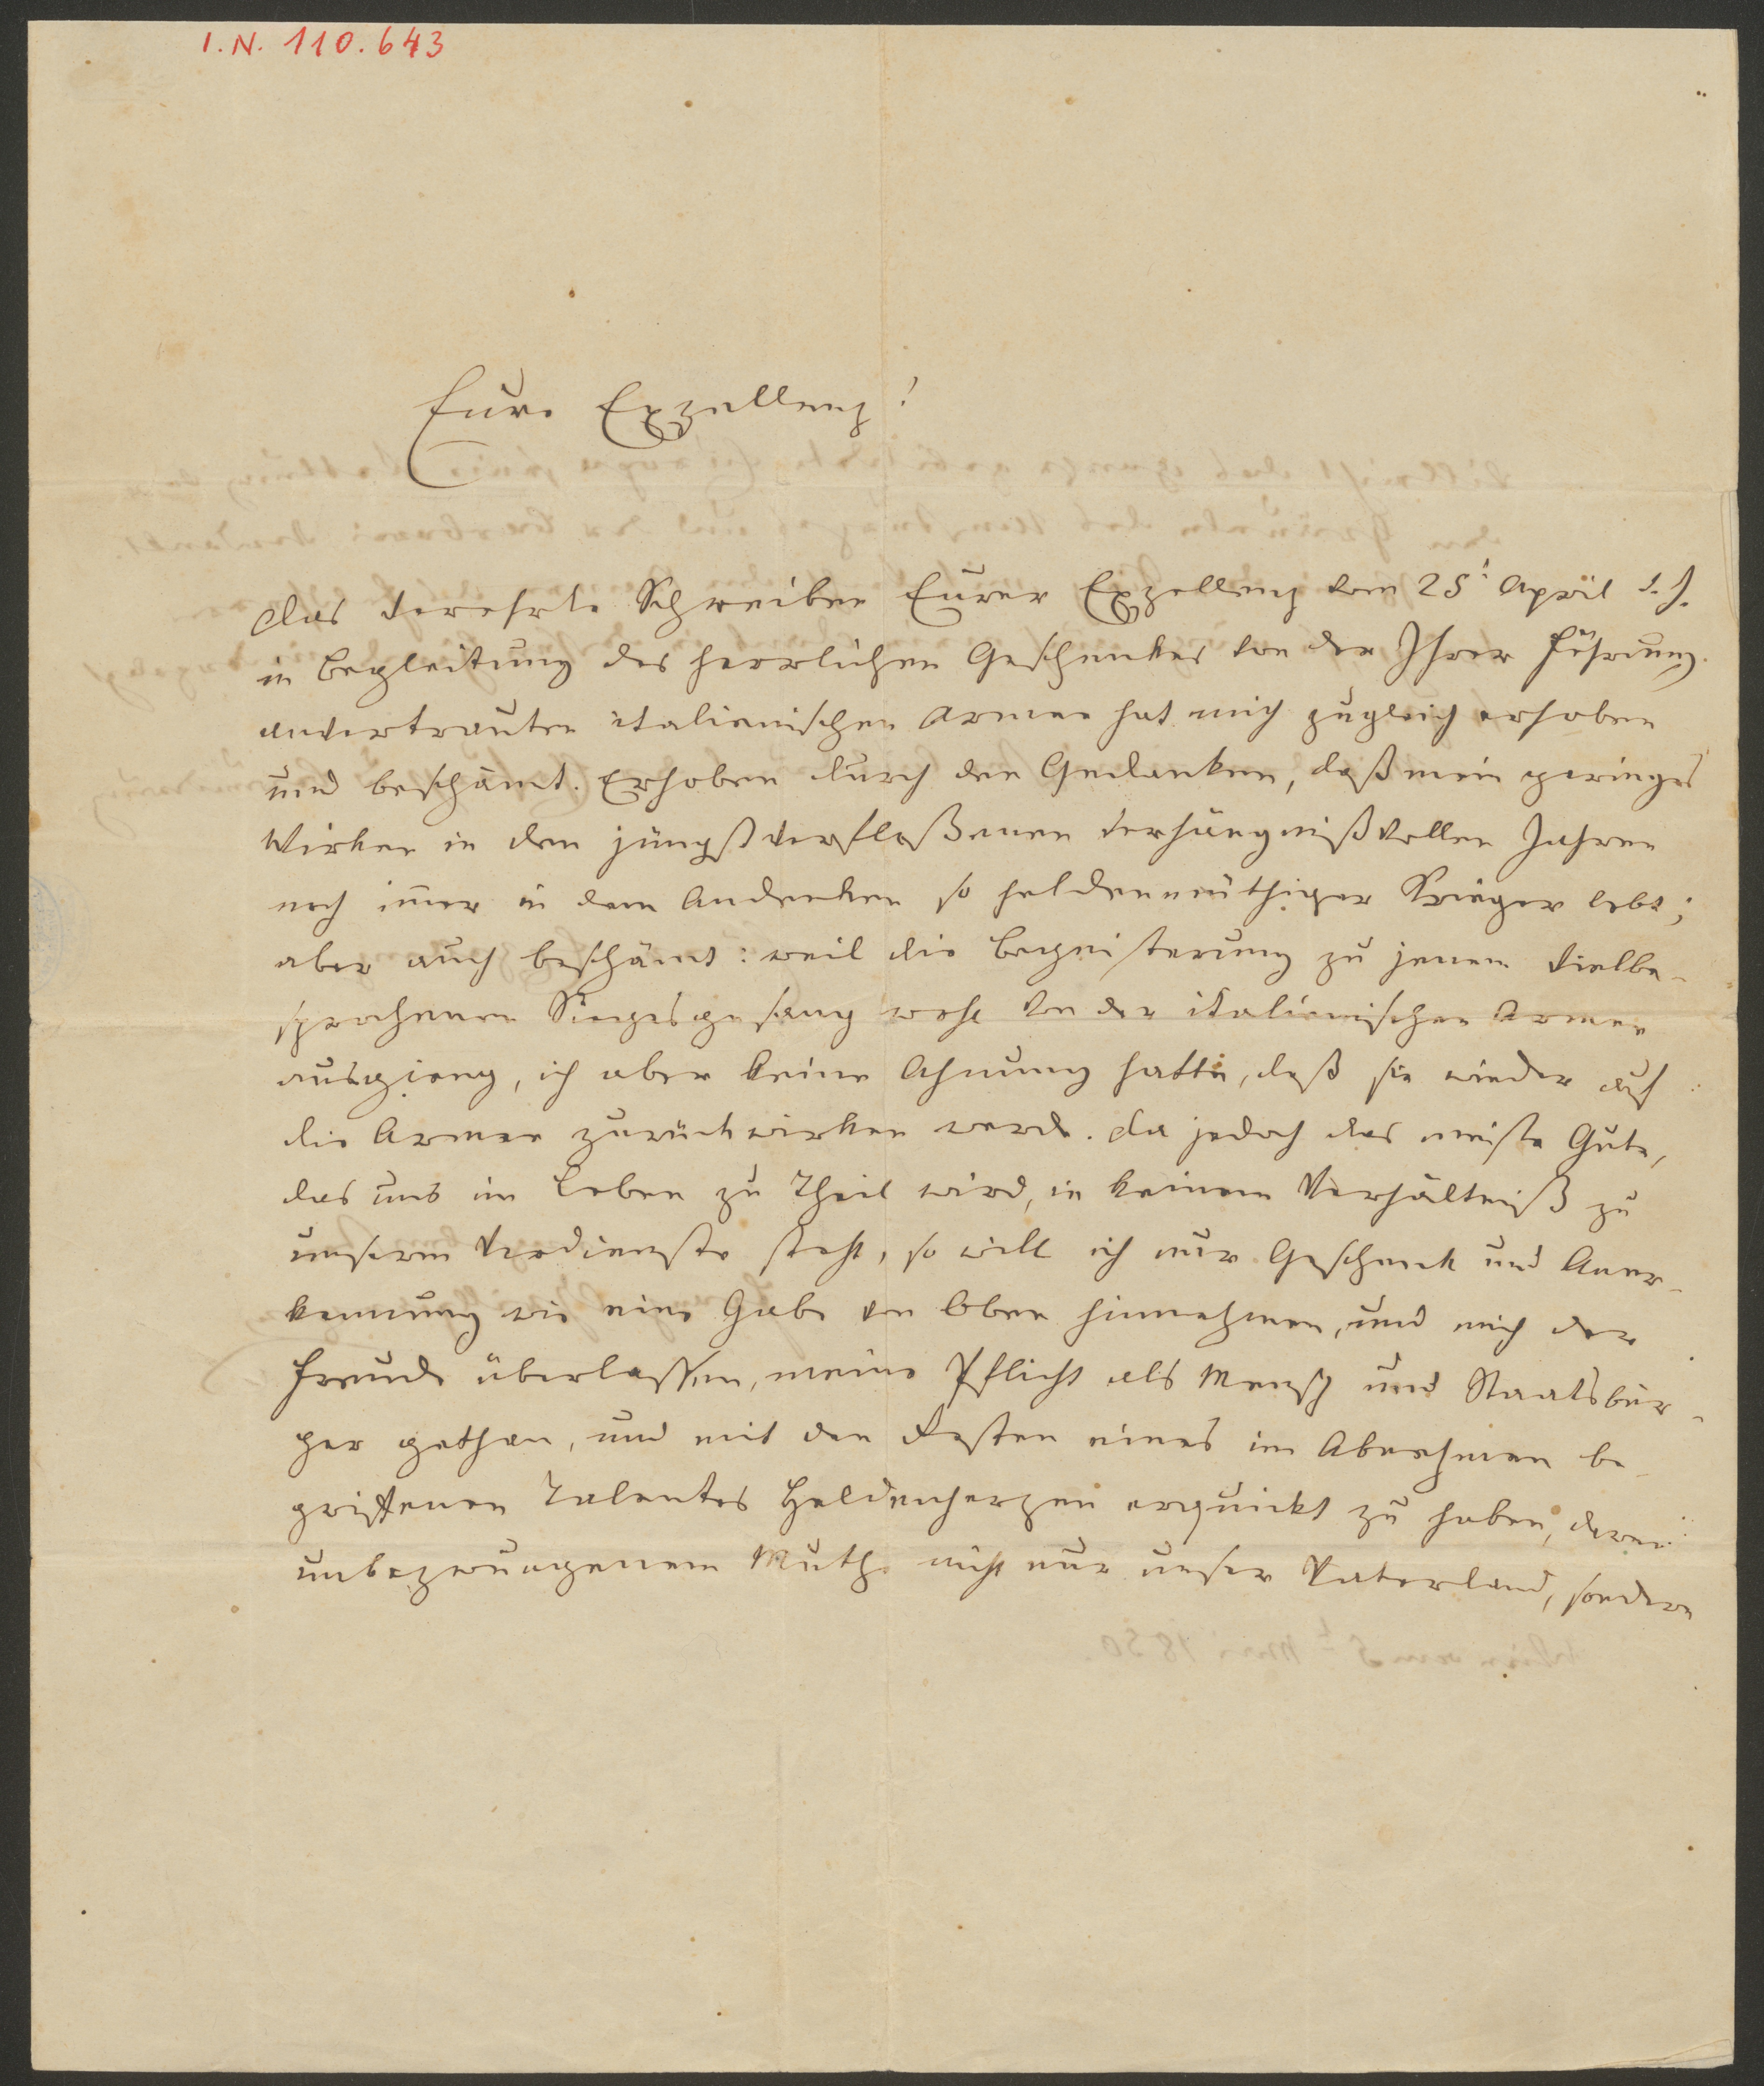 I.N. 110.643
Eure Exzellenz!
Das verehrte Schreiben Eurer Exzellenz vom 25t April d. J.
in Begleitung des herrlichen Geschenkes von der Ihrer Führung
anvertrauten italienischen Armee hat mich zugleich erhoben
und beschämt. Erhoben durch den Gedanken, daß mein geringes
Wirken in den jüngstverfloßenen verhängnißvollen Jahren
noch im̅er in dem Andenken so heldenmüthiger Krieger lebt;
aber auch beschämt: weil die Begeisterung zu jenem vielbe-
sprochenen Siegesgesang wohl von der italienischen Armee
ausgieng, ich aber keine Ahnung hatte, daß sie wieder auf
die Armee zurückwirken werde. Da jedoch das meiste Gute,
das uns im Leben zu Theil wird, in keinem Verhältniß zu
unserem Verdienste steht, so will ich nur Geschenk und Aner-
kennung wie eine Gabe von Oben hinnehmen, und mich der
Freude überlassen, meine Pflicht als Mensch und Staatsbür-
ger gethan, und mit den Resten eines im Abnehmen be-
griffenen Talentes Heldenherzen erquickt zu haben, deren
unbezwungenem Muthe nicht nur unser Vaterland, sondern